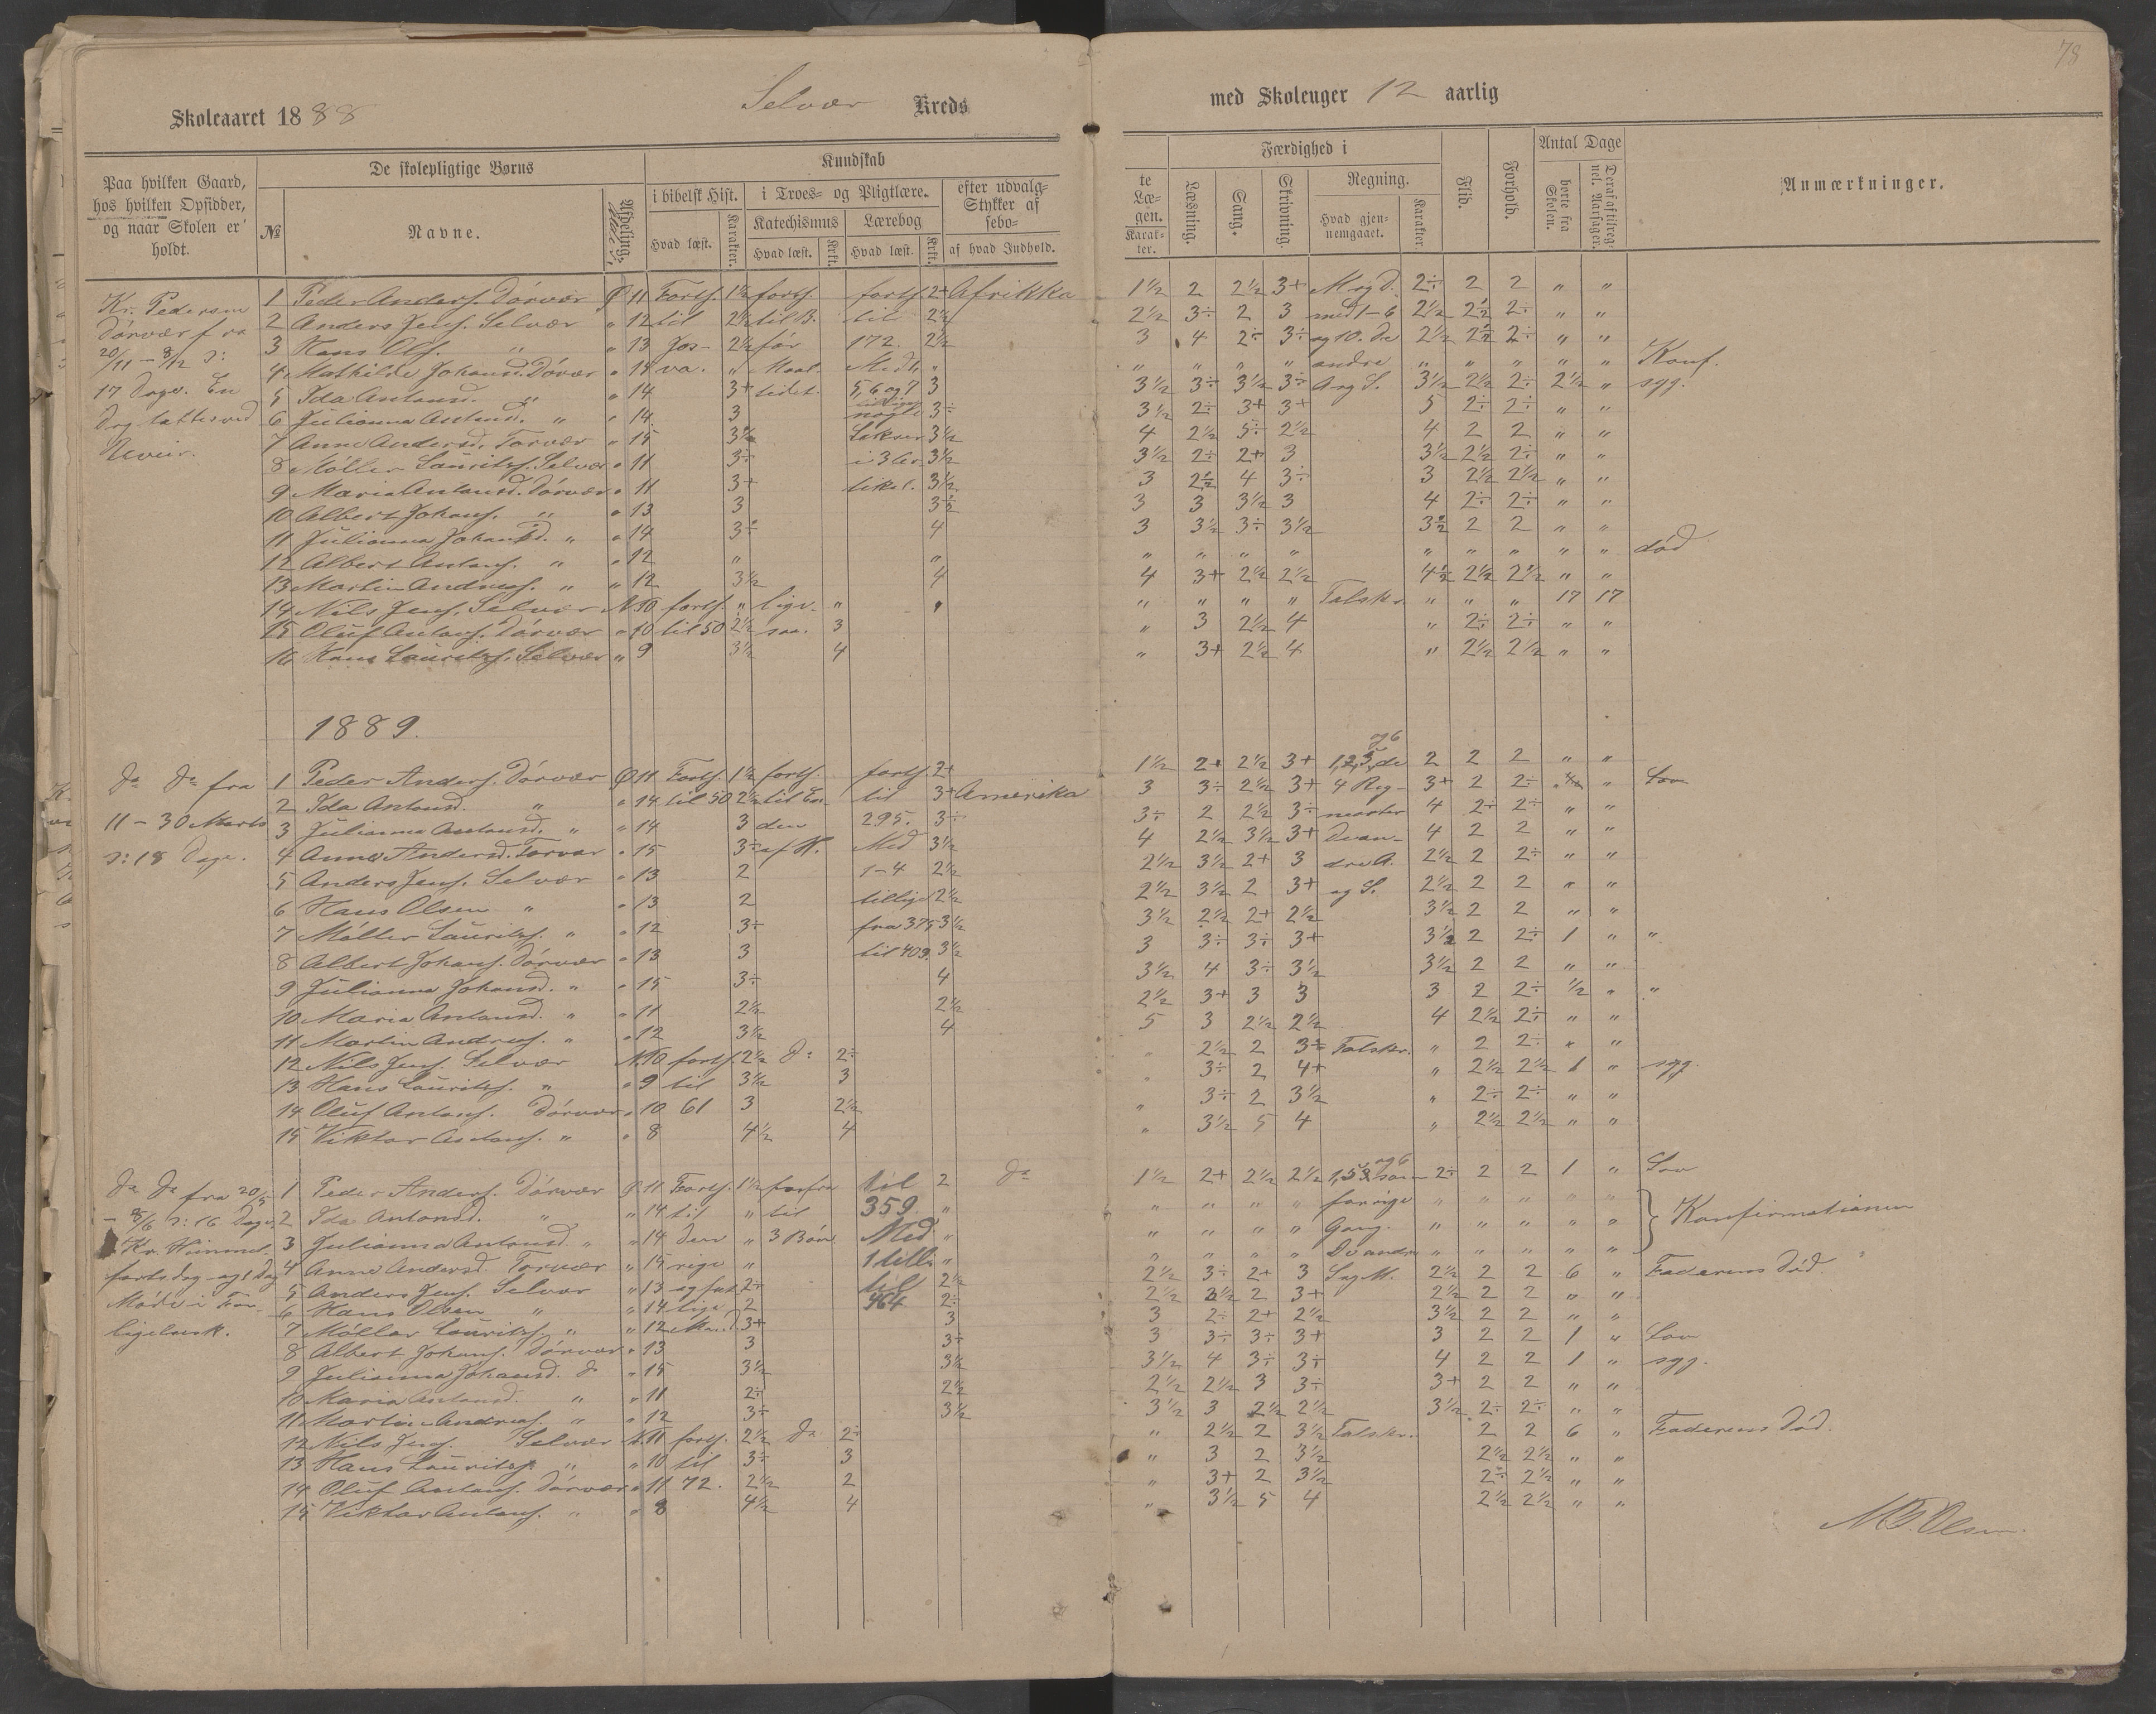 78
Skoleaaret 1888 Selvær Kreds med Skoleuger 12 aarlig
Paa hvilken Gaard, hos hvilken Opsidder, og naar Skolen er holdt.
De skolepligtige Børns
№ Navne. Afdeling. Alder.
Kundskab
i bibelsk Hist. Hvad læst. Karakter.
i Troes- og Pligtlære.
Katechismus Hvad læst. Krkt. Lærebog Hvad læst. Krkt.
efter udvalgte Stykker af Læsebogen. af hvad Indhold. Karakter.
Færdighed i
Læsning. Sang. Skrivning. Regning. Hvad gjennemgaaet. Karakter.
Flid. Forhold.
Antal Dage borte fra Skolen. Deraf af tilregnel. Aarsager.
Anmærkninger.
Kr. Pedersen
Dørvær fra
20/11 – 8/12 ɔ:
17 Dage. En
Dag tattes ved
Uveir.
1 Peder Anders. Dørvær Ø 11 Forts. 1½ forts. forts. 2+ Afrikka 1½ 2 2½ 3+ M og D. 2÷ 2 2 " "
2 Anders Jens. Selvær " 12 til 2½ til B. til 2½ 2½ 3÷ 2 3 med 1-6 2½ 2½ 2÷ " "
3 Hans Ols. " " 13 Jos- 2½ før 172. 2½ 3 4 2÷ 3÷ og 10. De 2½ 2½ 2÷ " "
4 Mathilde Johansd. Dørvær " 14 va. " Maal Medt. " " " " " andre " " " " " Konf.
5 Ida Antonsd. " " 14 3+ tidet. 5, 6 og 7 3 3½ 3÷ 3½ 3÷ A og S. 3½ 2½ 2÷ 2½ " syg.
6 Julianna Antonsd. " " 14 3 nogle 3÷ 3½ 2÷ 3+ 3+ 5 2÷ 2÷ " "
7 Anne Andersd. Torvær " 15 3½ Lekser 3½ 4 2½ 5÷ 2½ 4 2 2 " "
8 Møller Lauritss. Selvær " 11 3÷ i 3 Ar- 3½ 3½ 2÷ 2+ 3 3½ 2½ 2÷ " "
9 Maria Antonsd. Dørvær " 11 3+ tikel. 3½ 3 2½ 4 3÷ 3 2½ 2½ " "
10 Albert Johans. " " 13 3 3½ 3 3 3½ 3 4 2÷ 2÷ " "
11 Julianna Johansd. " " 14 3÷ 4 3 3½ 3÷ 3½ 3½ 2 2 " "
12 Albert Antons. " " 12 " " " " " " " " " " " død
13 Martin Andreas. " " 12 3½ 4 4 3+ 2½ 2½ 4½ 2½ 2½ " "
14 Nils Jens. Selvær N 10 forts. " lige- " " " " " Talskr. " " " 17 17
15 Oluf Antons. Dørvær " 10 til 50 2½ saa. 3 " 3 2½ 4 " 2÷ 2÷ " "
16 Hans Lauritss. Selvær " 9 3½ 4 " 3+ 2½ 4 " 2½ 2½ " "
1889.
Do Do fra
11 – 30 Marts
ɔ: 18 Dage.
1 Peder Anders. Dørvær Ø 11 Forts. 1½ forts. forts. 2+ 1½ 2+ 2½ 3+ 1,2,3, de og 6 2 2 2 " "
2 Ida Antonsd. " " 14 til 50 2½ til En- til 3+ Amerika 3 3÷ 2½ 3+ 4 Reg- 3+ 2 2÷ " Lov
3 Julianna Antonsd. " " 14 3 den 295. 3÷ 3÷ 2 2½ 3÷ nearter 4 2÷ 2÷ " "
4 Anne Andersd. Torvær " 15 3÷ af H. Med 3½ 4 2½ 3½ 3+ De an- 4 2 2 " "
5 Anders Jens. Selvær " 13 2 1-4 2½ 2½ 3½ 2+ 3 dre A. 2½ 2 2÷ " "
6 Hans Olsen " " 13 2 tillige 2½ 2½ 3½ 2 3+ og S. 2½ 2 2 " "
7 Møller Lauritss. " " 12 3÷ fra 375 3½ 3½ 2½ 2+ 2½ 3½ 2 2 " "
8 Albert Johans. Dørvær " 13 3 til 409. 3½ 3 3÷ 3÷ 3+ 3½ 2 2÷ 1 " "
9 Julianna Johansd. " " 15 3÷ 4 3½ 4 3÷ 3½ 3½ 2 2 " "
10 Maria Antonsd. " " 11 2½ 2½ 2½ 3+ 3 3 3 2 2÷ ½ " "
11 Martin Andreas. " " 12 3½ 4 5 3 2½ 2½ 4 2½ 2÷ " "
12 Nils Jens. Selvær N. 10 forts. 2½ Do 2÷ " 2½ 2 3÷ Talskr. " 2 2÷ " "
13 Hans Lauritss. " " 9 til 3½ 3 " 3÷ 2 4+ " 2½ 2½ 1 " syg.
14 Oluf Antons. Dørvær " 10 61 3 2½ " 3÷ 2 3½ " 2÷ 2÷ " "
15 Viktor Antons. " " 8 4½ 4 " 3½ 5 4 " 2½ 2½ " "
Do Do fra 20/5
– 8/6 ɔ: 16 Dage.
Kr. Himmel-
fartsdag og 1 Dag
Møde i For-
ligelsesk.
1 Peder Anders. Dørvær Ø 11 Forts. 1½ forfra til 2 Do 1½ 2+ 2½ 2½ 1,5,3, som og 6 2÷ 2 2 1 " Lov
2 Ida Antonsd. " " 14 til " til 359. " " " " " forrige " " " " "
3 Julianna Antonsd. " " 14 den " 3 Bøn Med " " " " " Gang. " " " " " Konfirmationen
4 Anne Andersd. Torvær " 15 rige " 1 till. " " " " " De andre " " " " "
5 Anders Jens. Selvær " 13 og fat- 2÷ til 2½ 2½ 3÷ 2+ 3 S og M. 2½ 2 2 6 " Faderens Død.
6 Hans Olsen " " 14 tige 2 464 2÷ 2½ 3½ 2 3+ 2½ 2 2 " "
7 Møller Lauritss. " " 12 Mand. 3+ 3 3 2÷ 2+ 2½ 3½ 2 2 " "
8 Albert Johans. Dørvær " 13 3 3÷ 3 3÷ 3÷ 3+ 3 2 2 1 " Lov
9 Julianna Johansd. Do " 15 3½ 3½ 3½ 4 3÷ 3÷ 4 2 2 1 " syg.
10 Maria Antonsd. " " 11 2÷ 2½ 2½ 2½ 3 3÷ 3+ 2 2 " "
11 Martin Andreas. " " 12 3÷ 3½ 3½ 3 2½ 2½ 3½ 2÷ 2÷ " "
12 Nils Jens. Selvær N. 11 forts. 2½ Do 2÷ " 2½ 2 3½ Talskr. 2 2 6 " Faderens Død.
13 Hans Lauritss. " " 10 til 3÷ 3 " 3 2 3½ 2½ 2½ " "
14 Oluf Antons. Dørvær " 11 72. 2½ 2 " 3+ 2 3½ 2÷ 2½ " "
15 Viktor Antons. " " 8 4½ 4 " 3½ 5 4 2½ 2½ " "
Olsen